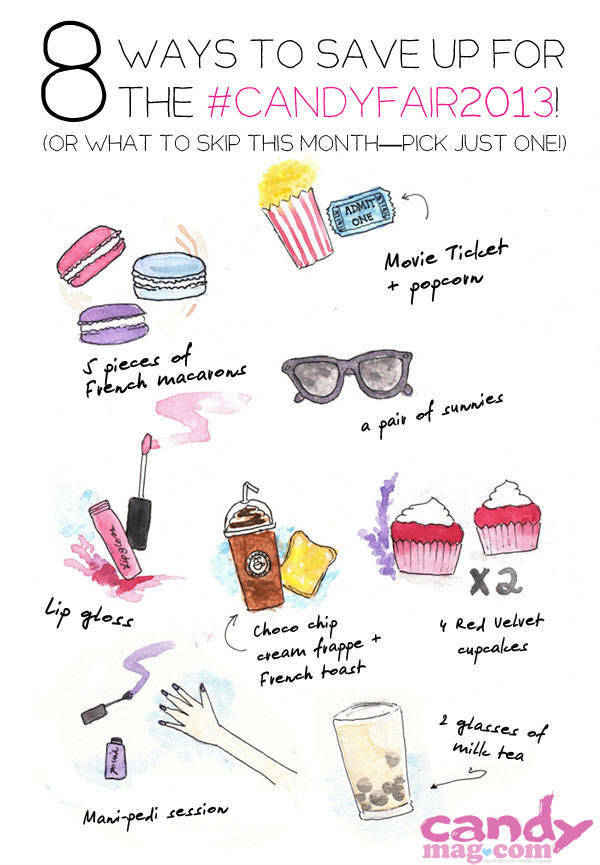 8 WAYS TO SAVE UP FOR
THE #CANDYFAIR2013!
(OR WHAT TO SKIP THIS MONTH—PICK JUST ONE!)
ADMIT
ONE
Movie Ticket
+ popcorn
5 pieces of
French macarons
a pair of sunnies
lipgloss
Lip gloss
Choco chip
cream frappe +
French toast
X2
4 Red Velvet
cupcakes
Mani-pedi session
2 glasses of
milk tea
candy
mag.com